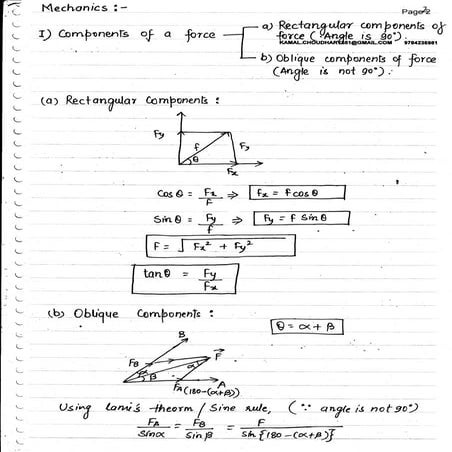 Mechanics :-
Page 2
I) Components of a force
a) Rectangular components of
force (Angle is 90°).
b) Oblique components of force
(Angle is not 90°).
(a) Rectangular Components :
Fy
f
Fy
θ
Fx
Cosθ = Fx/f ⇒ fx = f cosθ
Sinθ = Fy/f ⇒ Fy = f Sinθ
F = √Fx² + Fy²
tanθ = Fy/Fx
(b) Oblique Components :
θ = α + β
B
FB
α
β
α
F
FA
A
(180-(α+β))
Using lami's theorm / Sine rule, (∵ angle is not 90°)
FA/sinα = FB/sinβ = F/sin{180-(α+β)}